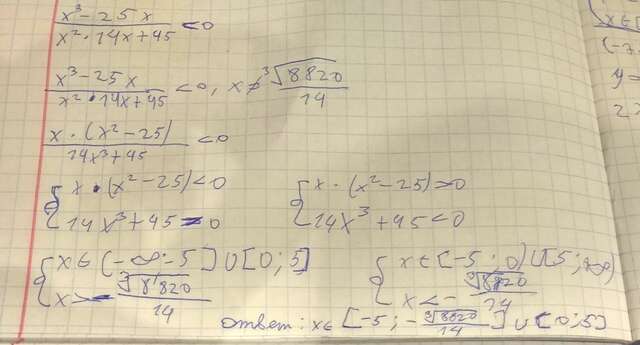 x³-25x / x²·14x+45 <0
x³-25x / x²·14x+45 <0, x≠ ³√8820 / 14
x·(x²-25) / 14x³+45 <0
{ x·(x²-25)<0 { x·(x²-25)>0
14x³+45>0 14x³+45<0
{ x∈(-∞;-5]∪[0;5] { x∈[-5;0)∪[5;+∞)
x>- ³√8820 / 14 x<- ³√8820 / 14
Ответ: x∈[-5;- ³√8820 / 14]∪[0;5]